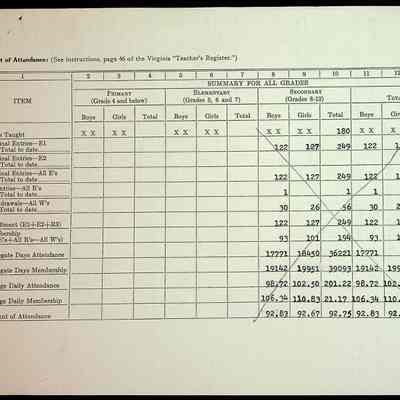 t of Attendance: (See instructions, page 46 of the Virginia "Teacher's Register.")
1 2 3 4 5 6 7 8 9 10 11 12
ITEM
SUMMARY FOR ALL GRADES
PRIMARY (Grade 4 and below) ELEMENTARY (Grades 5, 6 and 7) SECONDARY (Grades 8-12) TOTA
Boys Girls Total Boys Girls Total Boys Girls Total Boys Gir
Taught X X X X X X X X X X X X 180 X X X
inal Entries—E1
Total to date 122 127 249 122 1
inal Entries—E2
Total to date
inal Entries—All E's
Total to date 122 127 249 122 1
ntries—All R's
Total to date 1 1 1
drawals—All W's
Total to date 30 26 56 30 2
llment (E1+E2+E3) 122 127 249 122 1
bership
's+All R's—All W's) 93 101 194 93 1
gate Days Attendance 17771 18450 36221 17771
gate Days Membership 19142 19951 39093 19142 199
ge Daily Attendance 98.72 102.50 201.22 98.72 102.
ge Daily Membership 106.34 110.83 21.17 106.34 110.
nt of Attendance 92.83 92.67 92.75 92.83 92.